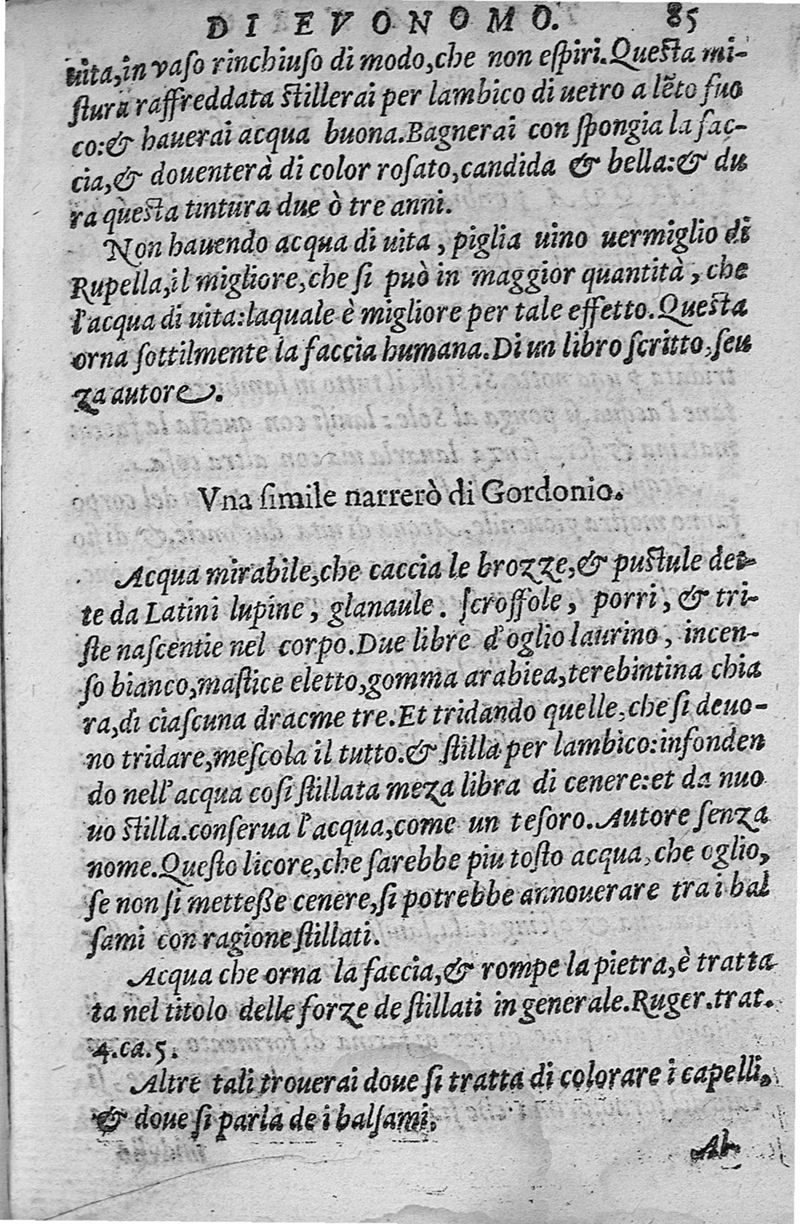 DI EVONOMO. 85
uita,in vaſo rinchiuſo di modo,che non eſpiri.Queſta mi-
ſtura raffreddata ſtillerai per lambico di uetro a lẽto fuo
co:& hauerai acqua buona.Bagnerai con ſpongia la fac-
cia,& douenterà di color roſato,candida & bella:& du
ra queſta tintura due ò tre anni.
Non hauendo acqua di uita, piglia uino uermiglio di
Rupella,il migliore,che ſi può in maggior quantità, che
l'acqua di uita:laquale è migliore per tale effetto.Queſta
orna ſottilmente la faccia humana.Di un libro ſcritto,ſeu
za autore.
Vna ſimile narrerò di Gordonio.
Acqua mirabile,che caccia le brozze,& puſtule det-
te da Latini lupine, glanaule. ſcroffole, porri, & tri-
ſte naſcentie nel corpo.Due libre d'oglio laurino, incen-
ſo bianco,maſtice eletto,gomma arabiea,terebintina chia
ra,di ciaſcuna dracme tre.Et tridando quelle,che ſi deuo-
no tridare,meſcola il tutto.& ſtilla per lambico:infonden
do nell'acqua coſi ſtillata meza libra di cenere:et da nuo
uo ſtilla.conſerua l'acqua,come un teſoro.Autore ſenza
nome.Queſto licore,che ſarebbe piu toſto acqua,che oglio,
ſe non ſi metteße cenere,ſi potrebbe annouerare tra i bal
ſami con ragione ſtillati.
Acqua che orna la faccia,& rompe la pietra,è tratta
ta nel titolo delle forze de ſtillati in generale.Ruger.trat.
4.ca.5.
Altre tali trouerai doue ſi tratta di colorare i capelli,
& doue ſi parla de i balſami.